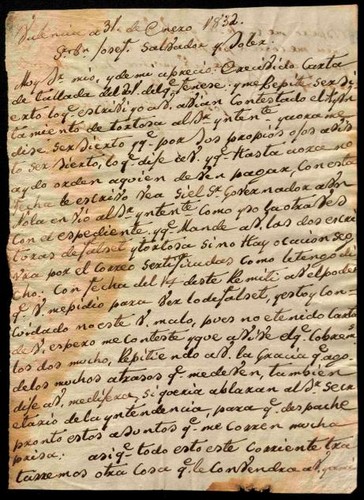 Valencia a 31 de Enero 1832.
Sr Dn Josef Salvador y Soler.
Muy Sr mio, y de mi aprecio: Erecibido carta
detallada del 21. del qe fenese. y me Repite ser si
erto lo qe escrivi go a V. Avian Contestado el Ayun
tamiento de tortosa al Sr yntente. y aora me
dise ser sierto y qe por sus propios ojos a vis
to ser sierto, loqe dise a V. y qe Hasta aora no
ay do orden a quien deven pagar, con esta
fecha le escrivo vea si el Sr Governador a
al Sr yntente Como yo la otra ves
con el espediente. y qe Mande a V. las dos escri
turas de falset y tortosa si no Hay ocacion se
por el correo sertificadas como le tengo di
cho. Con fecha del 14 deste Remiti a V. el poder
qe V. me pidio para ver lo de falset, y estoy con
cuidado no este V. malo, pues no e tenido carta
de V. espero me conteste y que a V. Cobren
los dos mucho, Repitiendo a V. la Gracia qe ago
de los muchos atrasos qe me deven, tambien
dise a V. me dijera, si queria ablaran al Sr Secre
tario de la yntendencia, para qe despache
pronto estos asuntos qe me corren mucha
prisa: asi qe todo esto este corriente tra
tarremos otra cosa qe le Contendra a V.